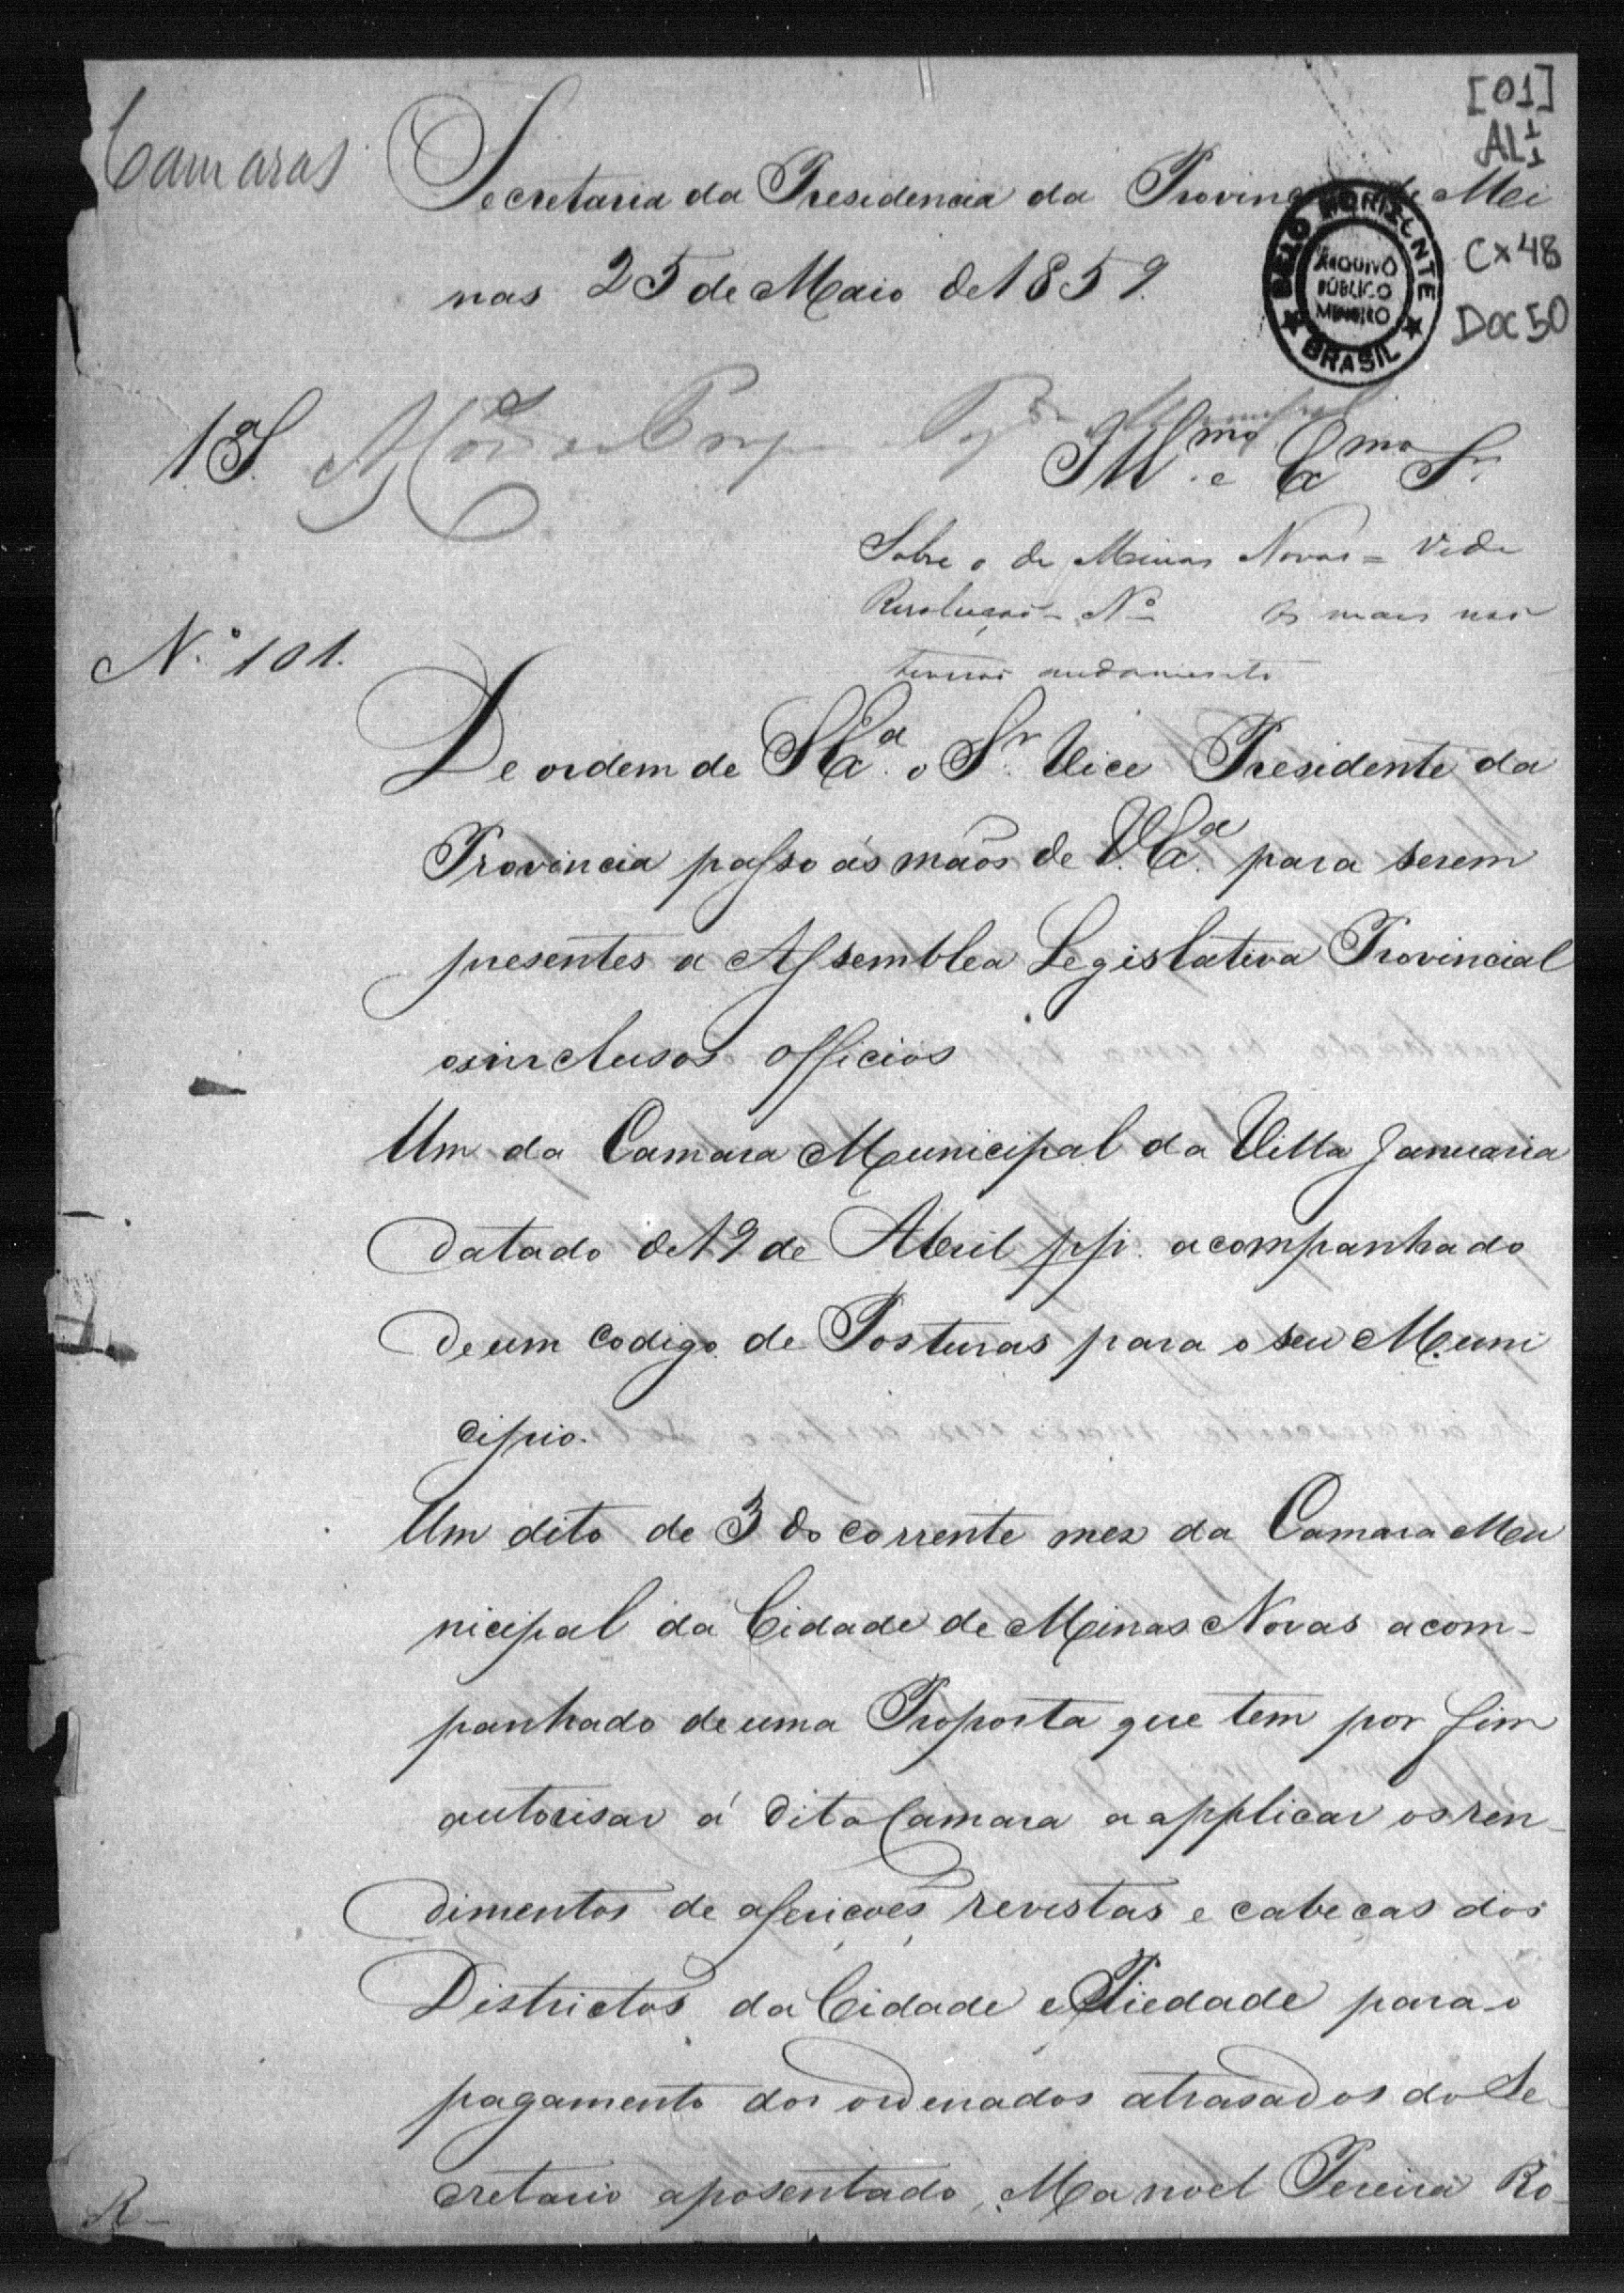 [01]
AL 1
1
Camaras
Secretaria da Presidencia da Provincia de Mi
Cx 48
nas 25 de Maio de 1859.
Doc 50
BELO HORIZONTE
ARQUIVO
PÚBLICO
MINEIRO
BRASIL
1ª S.
Illmo. e Exmo Sr.
Sobre o de Minas Novas = Vide
Resolução - Nº os mais não
tiverão andamento
N.º 101.
De ordem de S Exa. o Sr. Vice Presidente da
Provincia passo ás mãos de V. Exa. para serem
presentes a Assemblea Legislativa Provincial
os inclusos officios
Um da Camara Municipal da Villa Januaria
datado de 19 de Abril pp. acompanhado
de um codigo de Posturas para o seu Muni
cipio.
Um dito de 3 do corrente mez da Camara Mu
nicipal da Cidade de Minas Novas acom-
panhado de uma Proposta que tem por fim
autorisar á dita Camara a applicar os ren-
dimentos de aferições revistas e cabeças dos
Districtos da Cidade e Piedade para o
pagamento dos ordenados atrasados do Se-
cretario aposentado, Manoel Pereira Ro-
R-